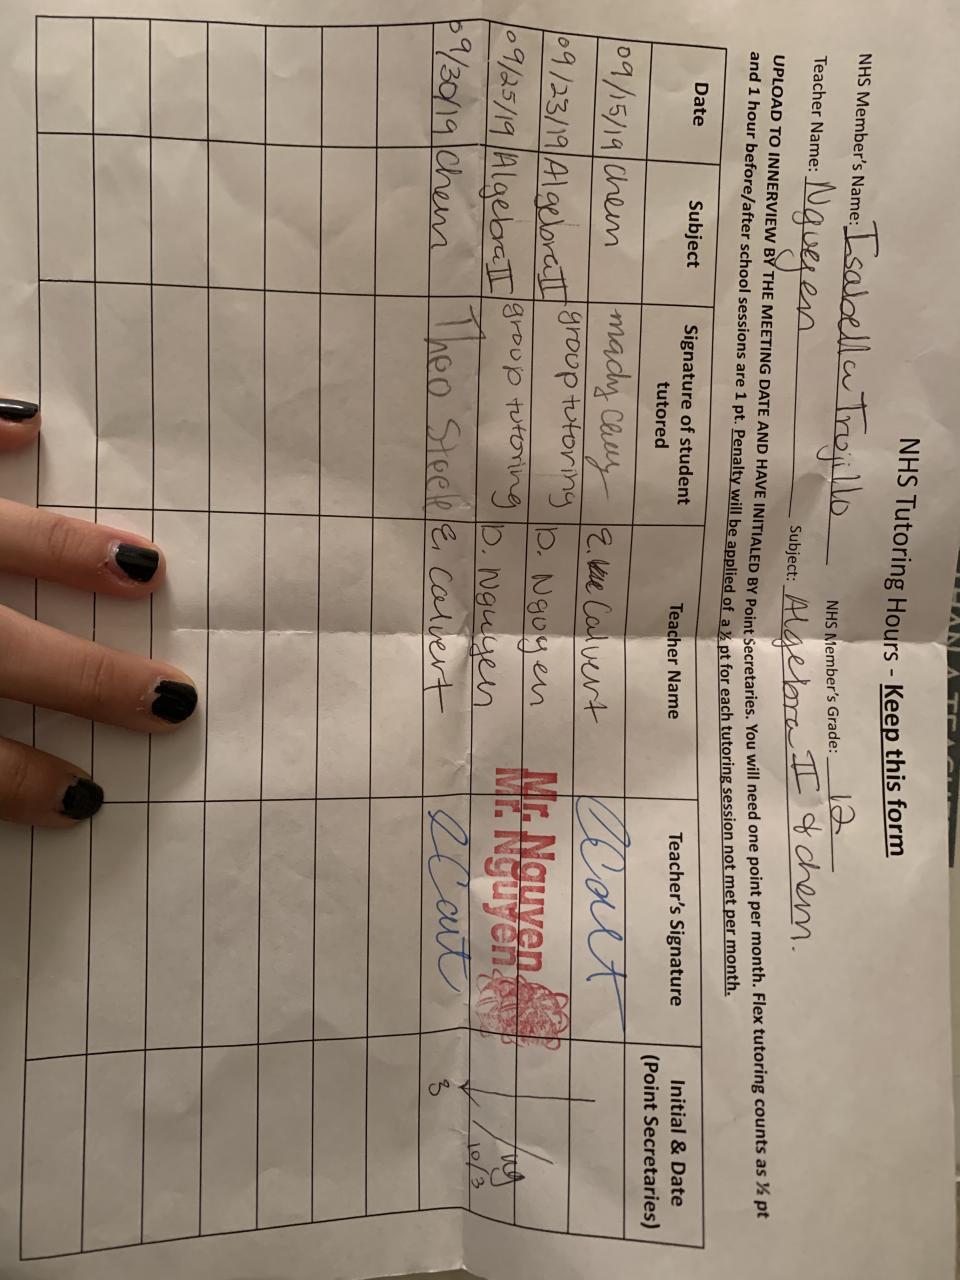 NHS Tutoring Hours - Keep this form
NHS Member's Name: Isabella Trujillo NHS Member's Grade: 12
Teacher Name: Nguyen Subject: Algebra II & chem.
UPLOAD TO INNERVIEW BY THE MEETING DATE AND HAVE INITIALED BY Point Secretaries. You will need one point per month. Flex tutoring counts as ½ pt
and 1 hour before/after school sessions are 1 pt. Penalty will be applied of a ½ pt for each tutoring session not met per month.
Date Subject Signature of student tutored Teacher Name Teacher's Signature Initial & Date (Point Secretaries)
09/15/19 chem mady E. Calvert
09/23/19 Algebra II group tutoring D. Nguyen Mr. Nguyen
09/25/19 Algebra II group tutoring D. Nguyen Mr. Nguyen 10/3
09/30/19 chem Theo Steele E. Calvert 3